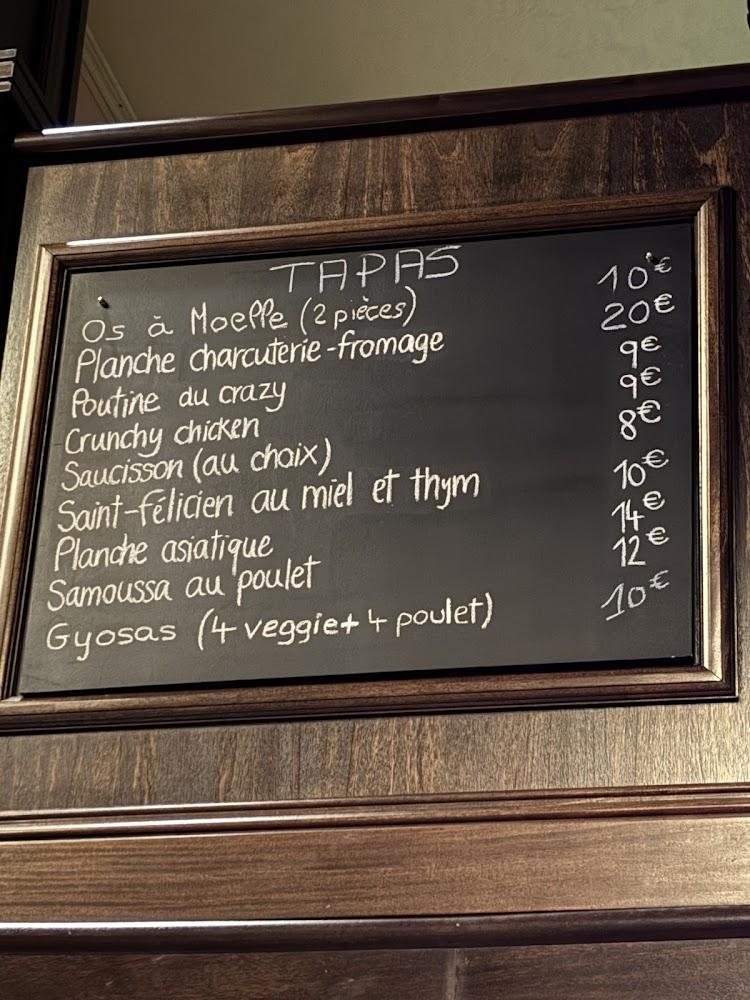 TAPAS
Os à Moelle (2 pièces) 10€
Planche charcuterie-fromage 20€
Poutine du crazy 9€
Crunchy chicken 9€
Saucisson (au choix) 8€
Saint-félicien au miel et thym 10€
Planche asiatique 14€
Samoussa au poulet 12€
Gyosas (4 veggie+ 4 poulet) 10€